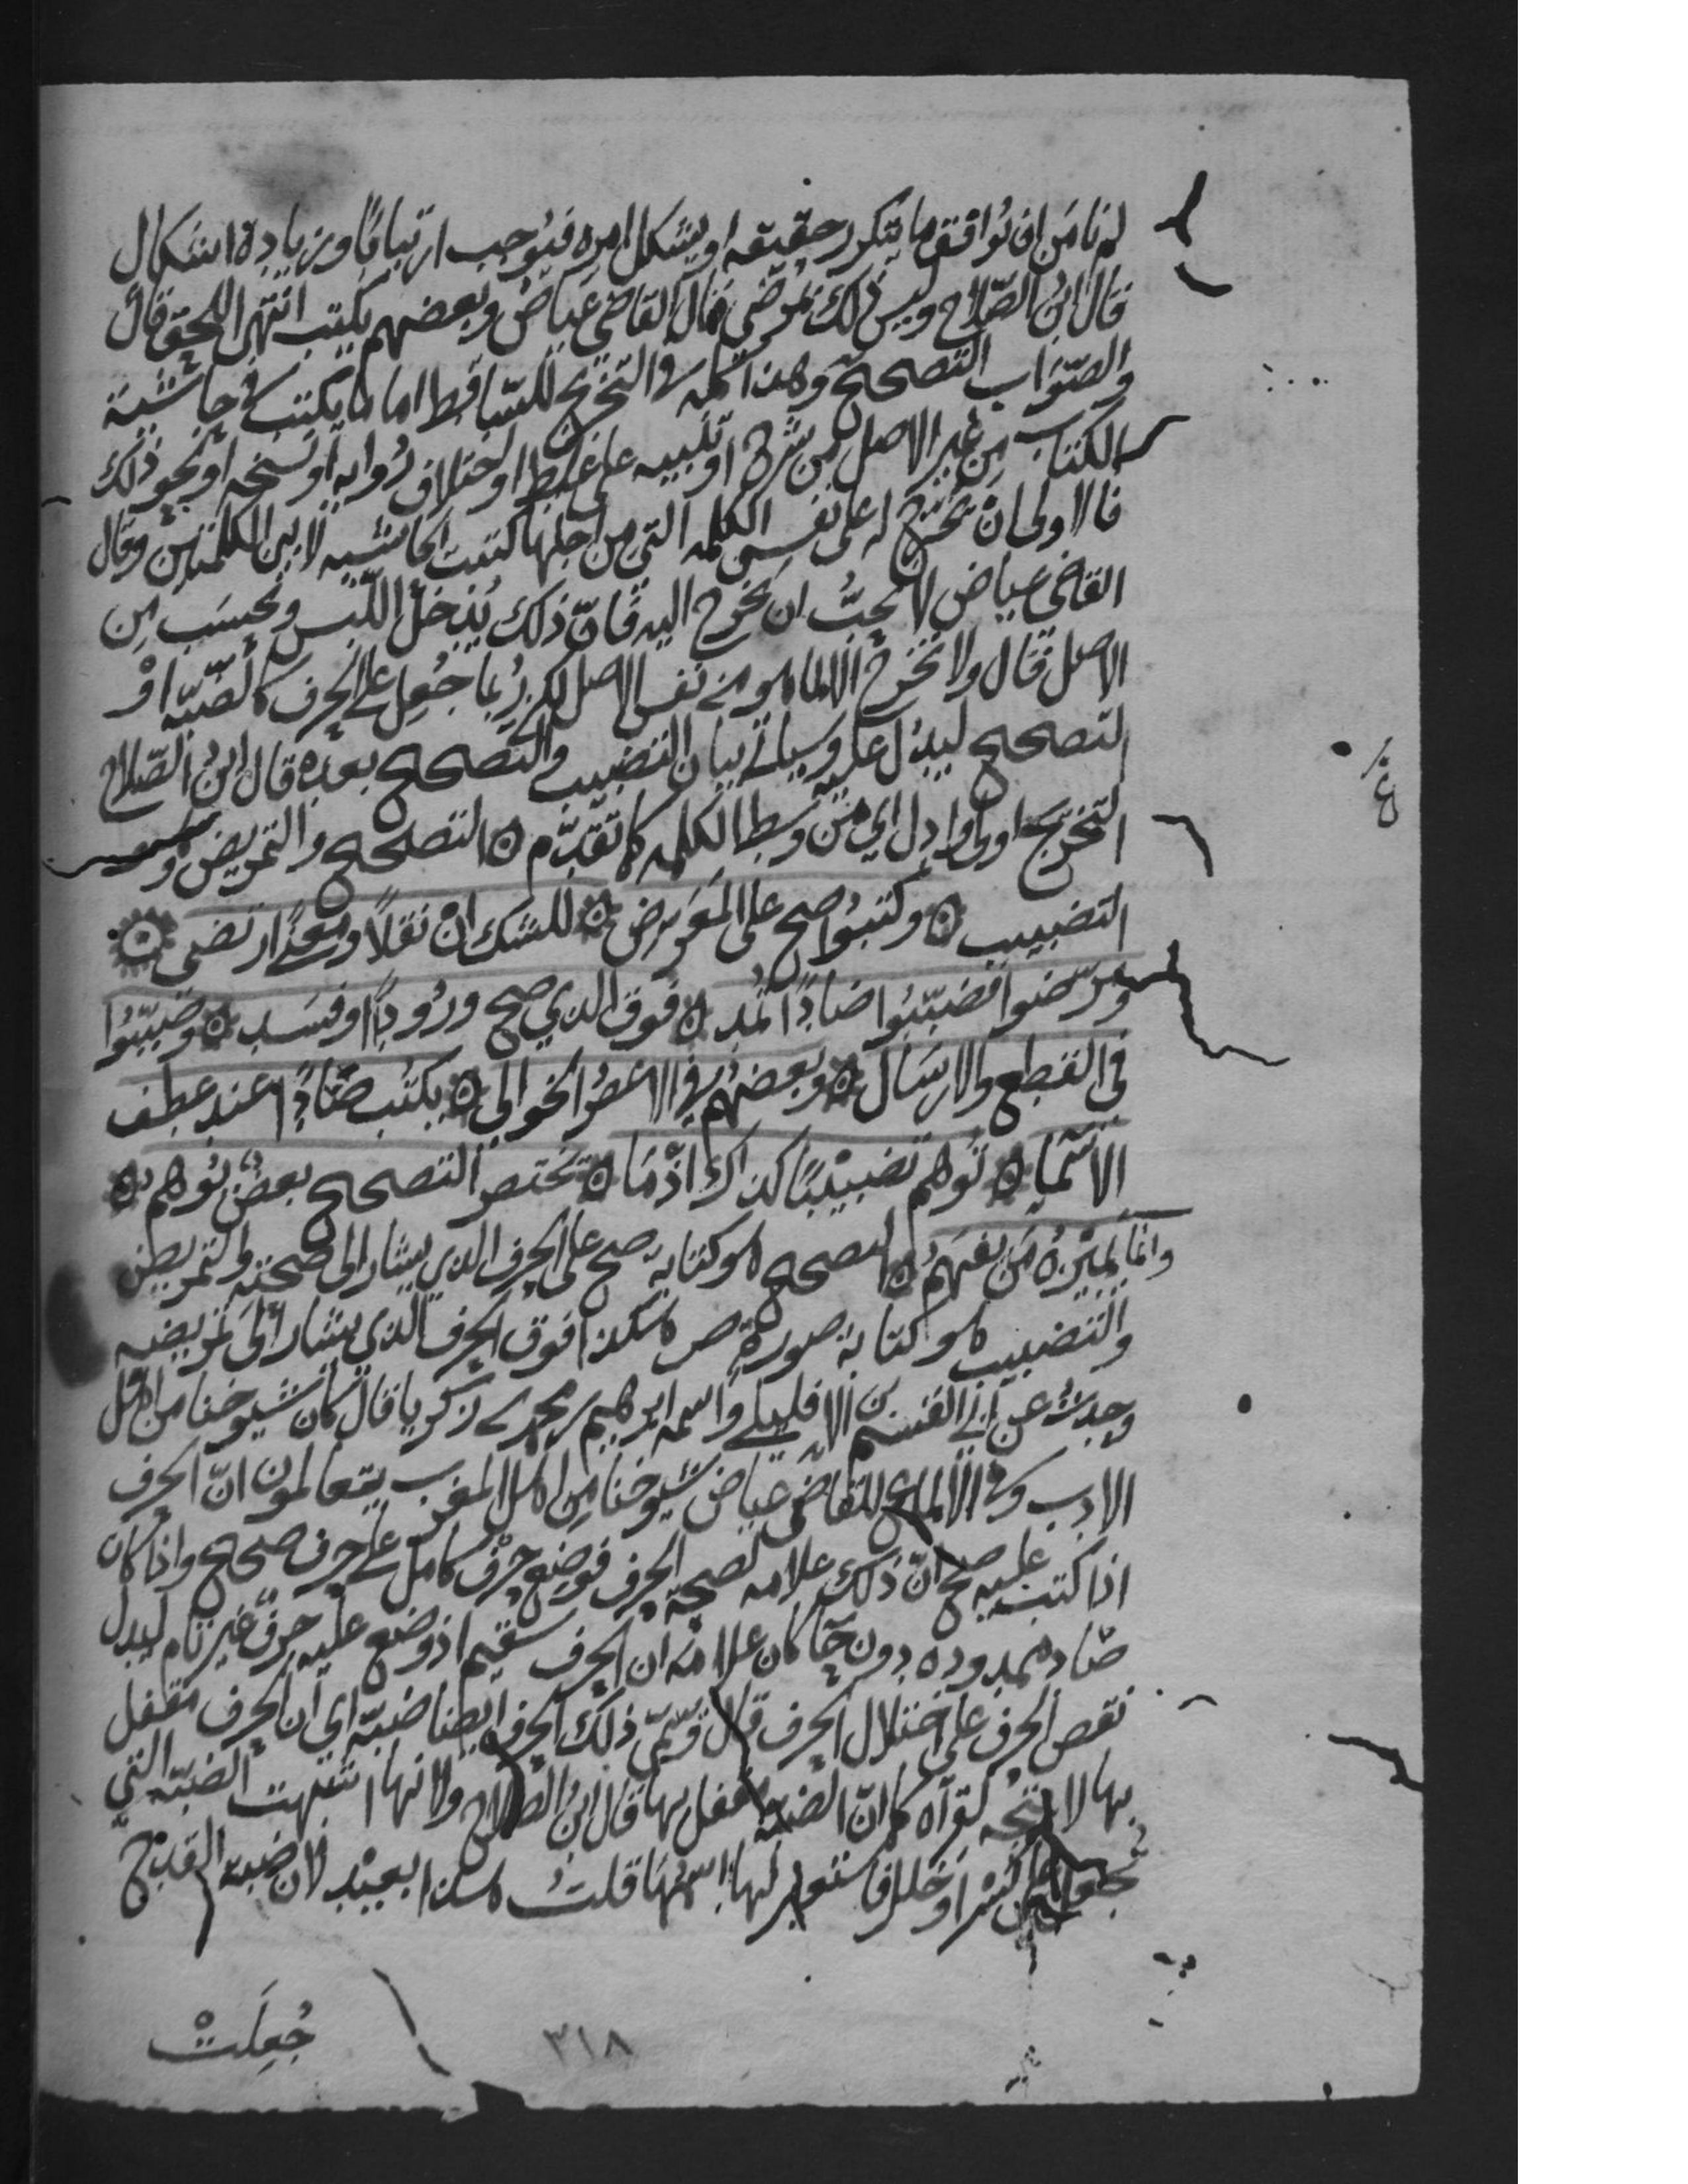 لم نامن ان توافق ما يتكرر حقيقه او يشكل امره فيوجب ارتيابًا وزيادة اشكال
قال ابن الصّلاح وليس ذلك بمرضي قال القاضي عياض وبعضهم يكتب انتهى اللحق قال
والصّواب التصحيح وهذا كله في التخريج للسّاقط اما ما يكتب في حاشية
الكتاب من غير الاصل من شرح او تنبيه على غلط او اختلاف رواية او نسخه او نحو ذلك
فالاولى ان يخرّج له على نفس الكلمه التي من اجلها كتبت الحاشيه لا بين الكلمتين وقال
القاضي عياض لا نحبّ ان يخرج اليه فانّ ذلك يدخل اللّبس ونحسب من
الاصل قال ولا يخرج الا لما هو من نفس الاصل لكن ربما جعل على الحرف كالضبّه او
لتصحيح ليدل عليه وسياتي بيان التضبيب والتصحيح بعده قال ابن الصّلاح
التخريج اولى وادل اي من وسط الكلمه كما تقدّم ۞ التصحيح والتمريض وهو
التضبيب ۞ وكتبوا صح على المعرض ۞ للشك ان نقلًا ومعنًى ارتضي ۞
ومرّضوا فضبّبوا صادًا تمد ۞ فوق الذي صح ورودًا وفسد ۞ وضبّبوا
في القطع والارسال ۞ وبعضهم في الاعصر الخوالي ۞ يكتب صادًا عند عطف
الاسما ۞ توهم تضبيبًا كذاك اذ ما ۞ يختصر التصحيح بعض يوهم ۞
وانما يميزه من يفهم ۞ التصحيح هو كتابة صح على الحرف الذي يشار الى صحته والتمريض
والتضبيب هو كتابة صورة ص هكذا فوق الحرف الذي يشار الى تمريضه
وجدت عن ابي القسم بن الافليلي واسمه ابرهيم بن محمد بن زكريا قال كان شيوخنا من اهل
الادب وفي الالماع للقاضي عياض شيوخنا من اهل المغرب يتعالمون انّ الحرف
اذا كتب عليه صح انّ ذلك علامه لصحّة الحرف فوضع حرف كامل على حرف صحيح واذا كان
صاد ممدوده دون حا كان علامة ان الحرف سقيم اذ وضع عليه حرف غير تام ليدل
نقص الحرف على اختلال الحرف قال وسمّي ذلك الحرف ايضا ضبّه اي ان الحرف مقفل
بها لا يتجه لقرآه كما انّ الضبه مقفل بها قال ابن الصلاح ولانها اشبهت الضبّه التي
تجعل على كسر او خلل فاستعير لها اسمها قلت هذا بعيد لان ضبه القدح
جُعِلَتْ
٣١٨